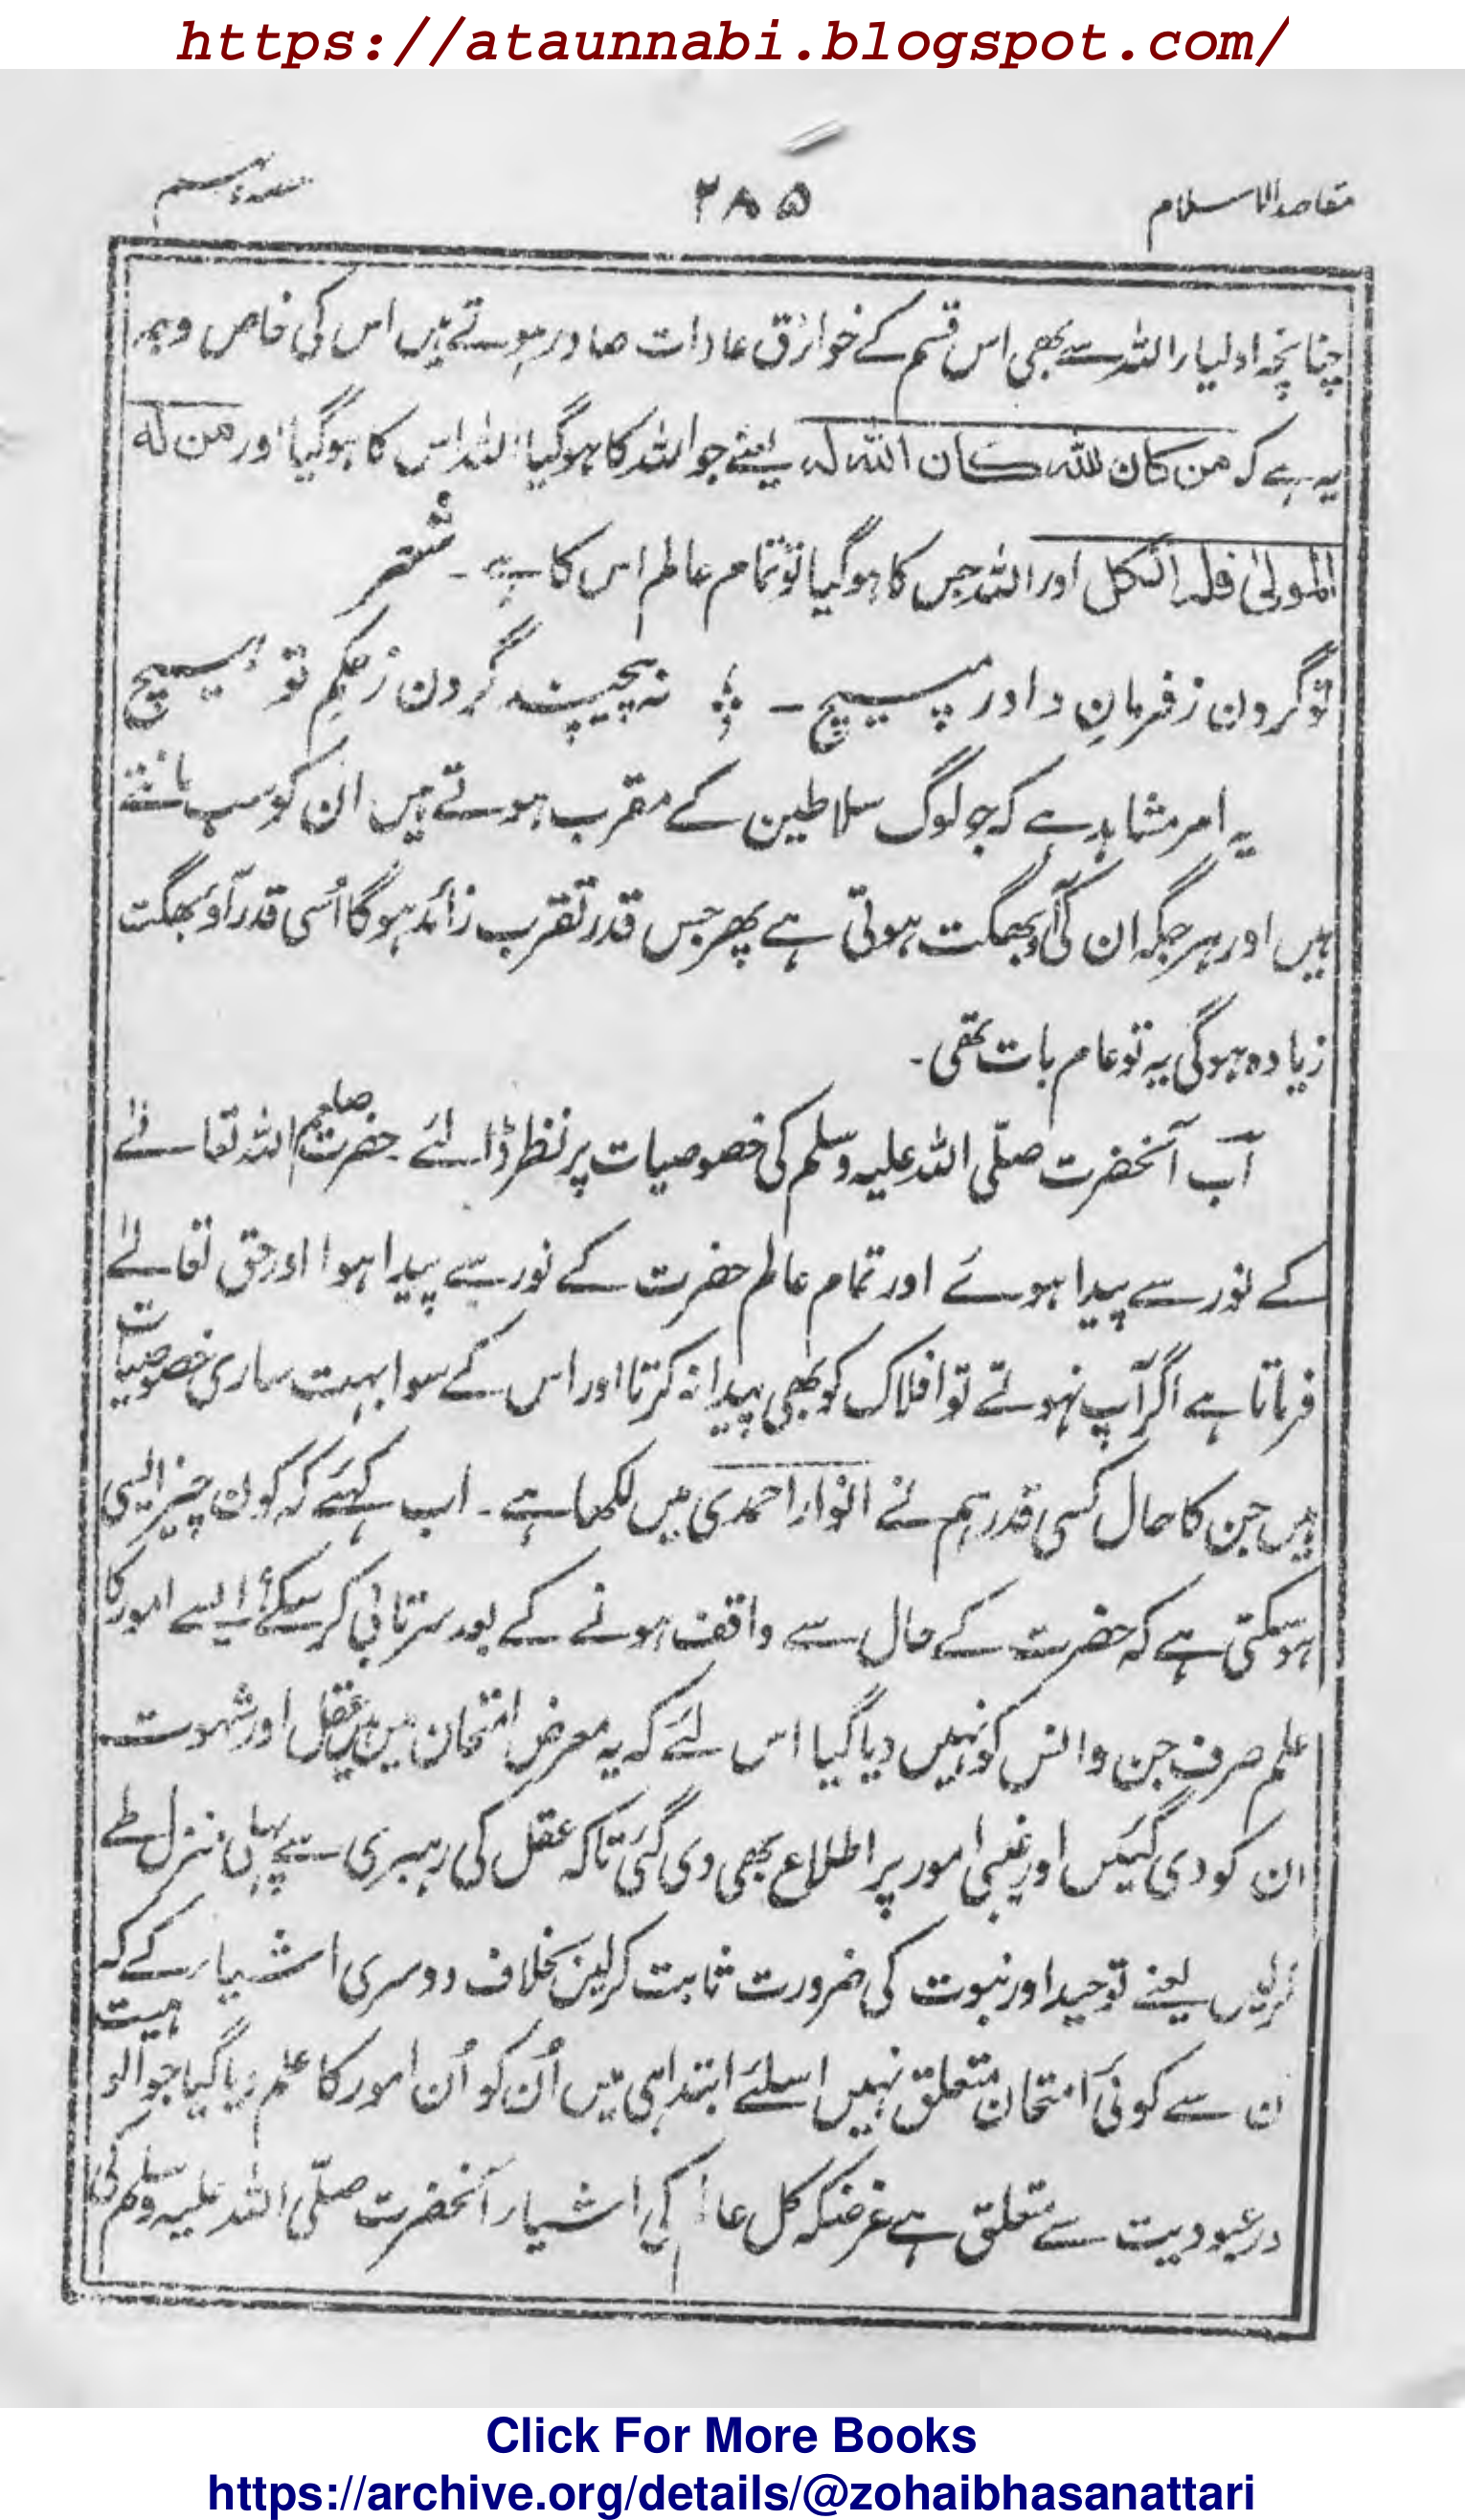 https://ataunnabi.blogspot.com/
مقاصد الاسلام
۲۸۵
چنانچہ اولیاء اللہ سے بھی اس قسم کے خوارق عادات صادر ہوتے ہیں اس کی خاص وجہ
یہ ہے کہ من کان للہ کان اللہ لہ یعنے جو اللہ کا ہوگیا اللہ اس کا ہوگیا اور من لہ
المولیٰ فلہ الکل اور اللہ جس کا ہوگیا تو تمام عالم اس کا ہے ۔ شعر
تو گردن ز فرمانِ داور مپیچ ۔ نہ پیچند گردن ز حکمِ تو ہیچ
یہ امر مشاہد ہے کہ جو لوگ سلاطین کے مقرب ہوتے ہیں ان کو سب مانتے
ہیں اور ہر جگہ ان کی آؤبھگت ہوتی ہے پھر جس قدر تقرب زائد ہوگا اُسی قدر آؤبھگت
زیادہ ہوگی یہ تو عام بات تھی ۔
اب آنحضرت صلّی اللہ علیہ وسلم کی خصوصیات پر نظر ڈالئے حضرت صلعم اللہ تعالےٰ
کے نور سے پیدا ہوئے اور تمام عالم حضرت کے نور سے پیدا ہوا اور حق تعالےٰ
فرماتا ہے اگر آپ نہوتے تو افلاک کو بھی پیدا نہ کرتا اور اس کے سوا بہت ساری خصوصیات
ہیں جن کا حال کسی قدر ہم نے انوار احمدی میں لکھا ہے ۔ اب کہئے کہ کون چیز ایسی
ہوسکتی ہے کہ حضرت کے حال سے واقف ہونے کے بعد سرتابی کرسکے ایسے امور کا
علم صرف جن و انس کو نہیں دیا گیا اس لئے کہ یہ معرض امتحان میں ہیں عقل اور شہوت
ان کو دی گئیں اور غیبی امور پر اطلاع بھی دی گئی تاکہ عقل کی رہبری سے پہلی منزل طے
کرلیں یعنے توحید اور نبوت کی ضرورت ثابت کرلیں بخلاف دوسری اشیاء کے کہ
ن سے کوئی امتحان متعلق نہیں اسلئے ابتدا ہی میں اُن کو اُن امور کا علم دیا گیا جو الوہیت
در عبودیت سے متعلق ہے غرضکہ کل عالم کی اشیاء آنحضرت صلّی اللہ علیہ وسلم کی
Click For More Books
https://archive.org/details/@zohaibhasanattari